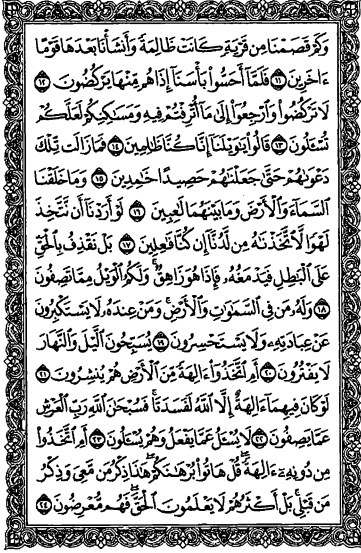 وَكَمْ قَصَمْنَا مِن قَرْيَةٍ كَانَتْ ظَالِمَةً وَأَنشَأْنَا بَعْدَهَا قَوْمًا
ءَاخَرِينَ ١١ فَلَمَّآ أَحَسُّوا۟ بَأْسَنَآ إِذَا هُم مِّنْهَا يَرْكُضُونَ ١٢
لَا تَرْكُضُوا۟ وَٱرْجِعُوٓا۟ إِلَىٰ مَآ أُتْرِفْتُمْ فِيهِ وَمَسَـٰكِنِكُمْ لَعَلَّكُمْ
تُسْـَٔلُونَ ١٣ قَالُوا۟ يَـٰوَيْلَنَآ إِنَّا كُنَّا ظَـٰلِمِينَ ١٤ فَمَا زَالَت تِّلْكَ
دَعْوَىٰهُمْ حَتَّىٰ جَعَلْنَـٰهُمْ حَصِيدًا خَـٰمِدِينَ ١٥ وَمَا خَلَقْنَا
ٱلسَّمَآءَ وَٱلْأَرْضَ وَمَا بَيْنَهُمَا لَـٰعِبِينَ ١٦ لَوْ أَرَدْنَآ أَن نَّتَّخِذَ
لَهْوًا لَّٱتَّخَذْنَـٰهُ مِن لَّدُنَّآ إِن كُنَّا فَـٰعِلِينَ ١٧ بَلْ نَقْذِفُ بِٱلْحَقِّ
عَلَى ٱلْبَـٰطِلِ فَيَدْمَغُهُۥ فَإِذَا هُوَ زَاهِقٌ ۚ وَلَكُمُ ٱلْوَيْلُ مِمَّا تَصِفُونَ
١٨ وَلَهُۥ مَن فِى ٱلسَّمَـٰوَٰتِ وَٱلْأَرْضِ ۚ وَمَنْ عِندَهُۥ لَا يَسْتَكْبِرُونَ
عَنْ عِبَادَتِهِۦ وَلَا يَسْتَحْسِرُونَ ١٩ يُسَبِّحُونَ ٱلَّيْلَ وَٱلنَّهَارَ
لَا يَفْتُرُونَ ٢٠ أَمِ ٱتَّخَذُوٓا۟ ءَالِهَةً مِّنَ ٱلْأَرْضِ هُمْ يُنشِرُونَ ٢١
لَوْ كَانَ فِيهِمَآ ءَالِهَةٌ إِلَّا ٱللَّهُ لَفَسَدَتَا ۚ فَسُبْحَـٰنَ ٱللَّهِ رَبِّ ٱلْعَرْشِ
عَمَّا يَصِفُونَ ٢٢ لَا يُسْـَٔلُ عَمَّا يَفْعَلُ وَهُمْ يُسْـَٔلُونَ ٢٣ أَمِ ٱتَّخَذُوا۟
مِن دُونِهِۦٓ ءَالِهَةً ۖ قُلْ هَاتُوا۟ بُرْهَـٰنَكُمْ ۖ هَـٰذَا ذِكْرُ مَن مَّعِىَ وَذِكْرُ
مَن قَبْلِى ۗ بَلْ أَكْثَرُهُمْ لَا يَعْلَمُونَ ٱلْحَقَّ ۖ فَهُم مُّعْرِضُونَ ٢٤